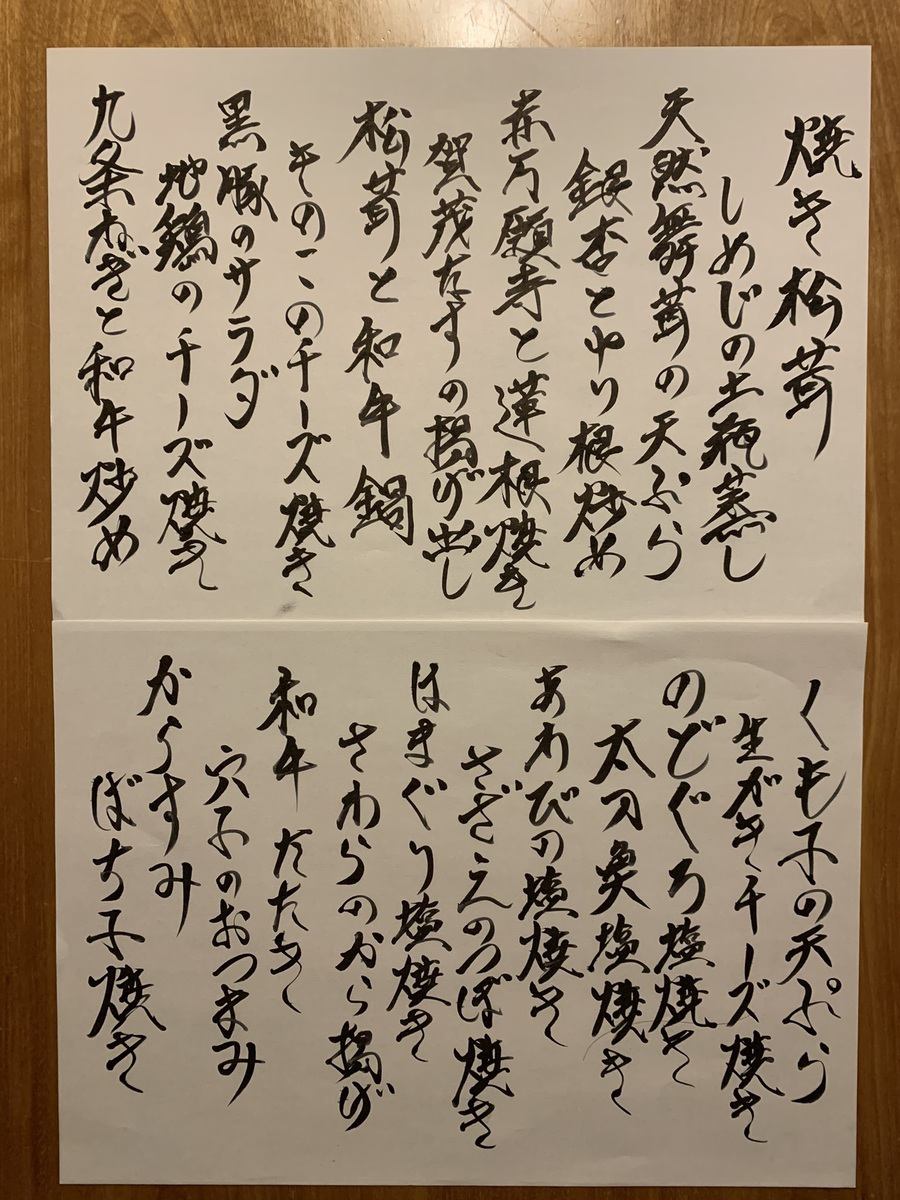 焼き松茸
しめじの土瓶蒸し
天然舞茸の天ぷら
銀杏とゆり根炒め
赤万願寺と蓮根焼き
賀茂なすの揚げ出し
松茸と和牛鍋
きのこのチーズ焼き
黒豚のサラダ
地鶏のチーズ焼き
九条ねぎと和牛炒め
くも子の天ぷら
生がきチーズ焼き
のどぐろ塩焼き
太刀魚塩焼き
あわびの塩焼き
さざえのつぼ焼き
はまぐり塩焼き
さわらのから揚げ
和牛たたき
穴子のおつまみ
からすみ
ばち子焼き